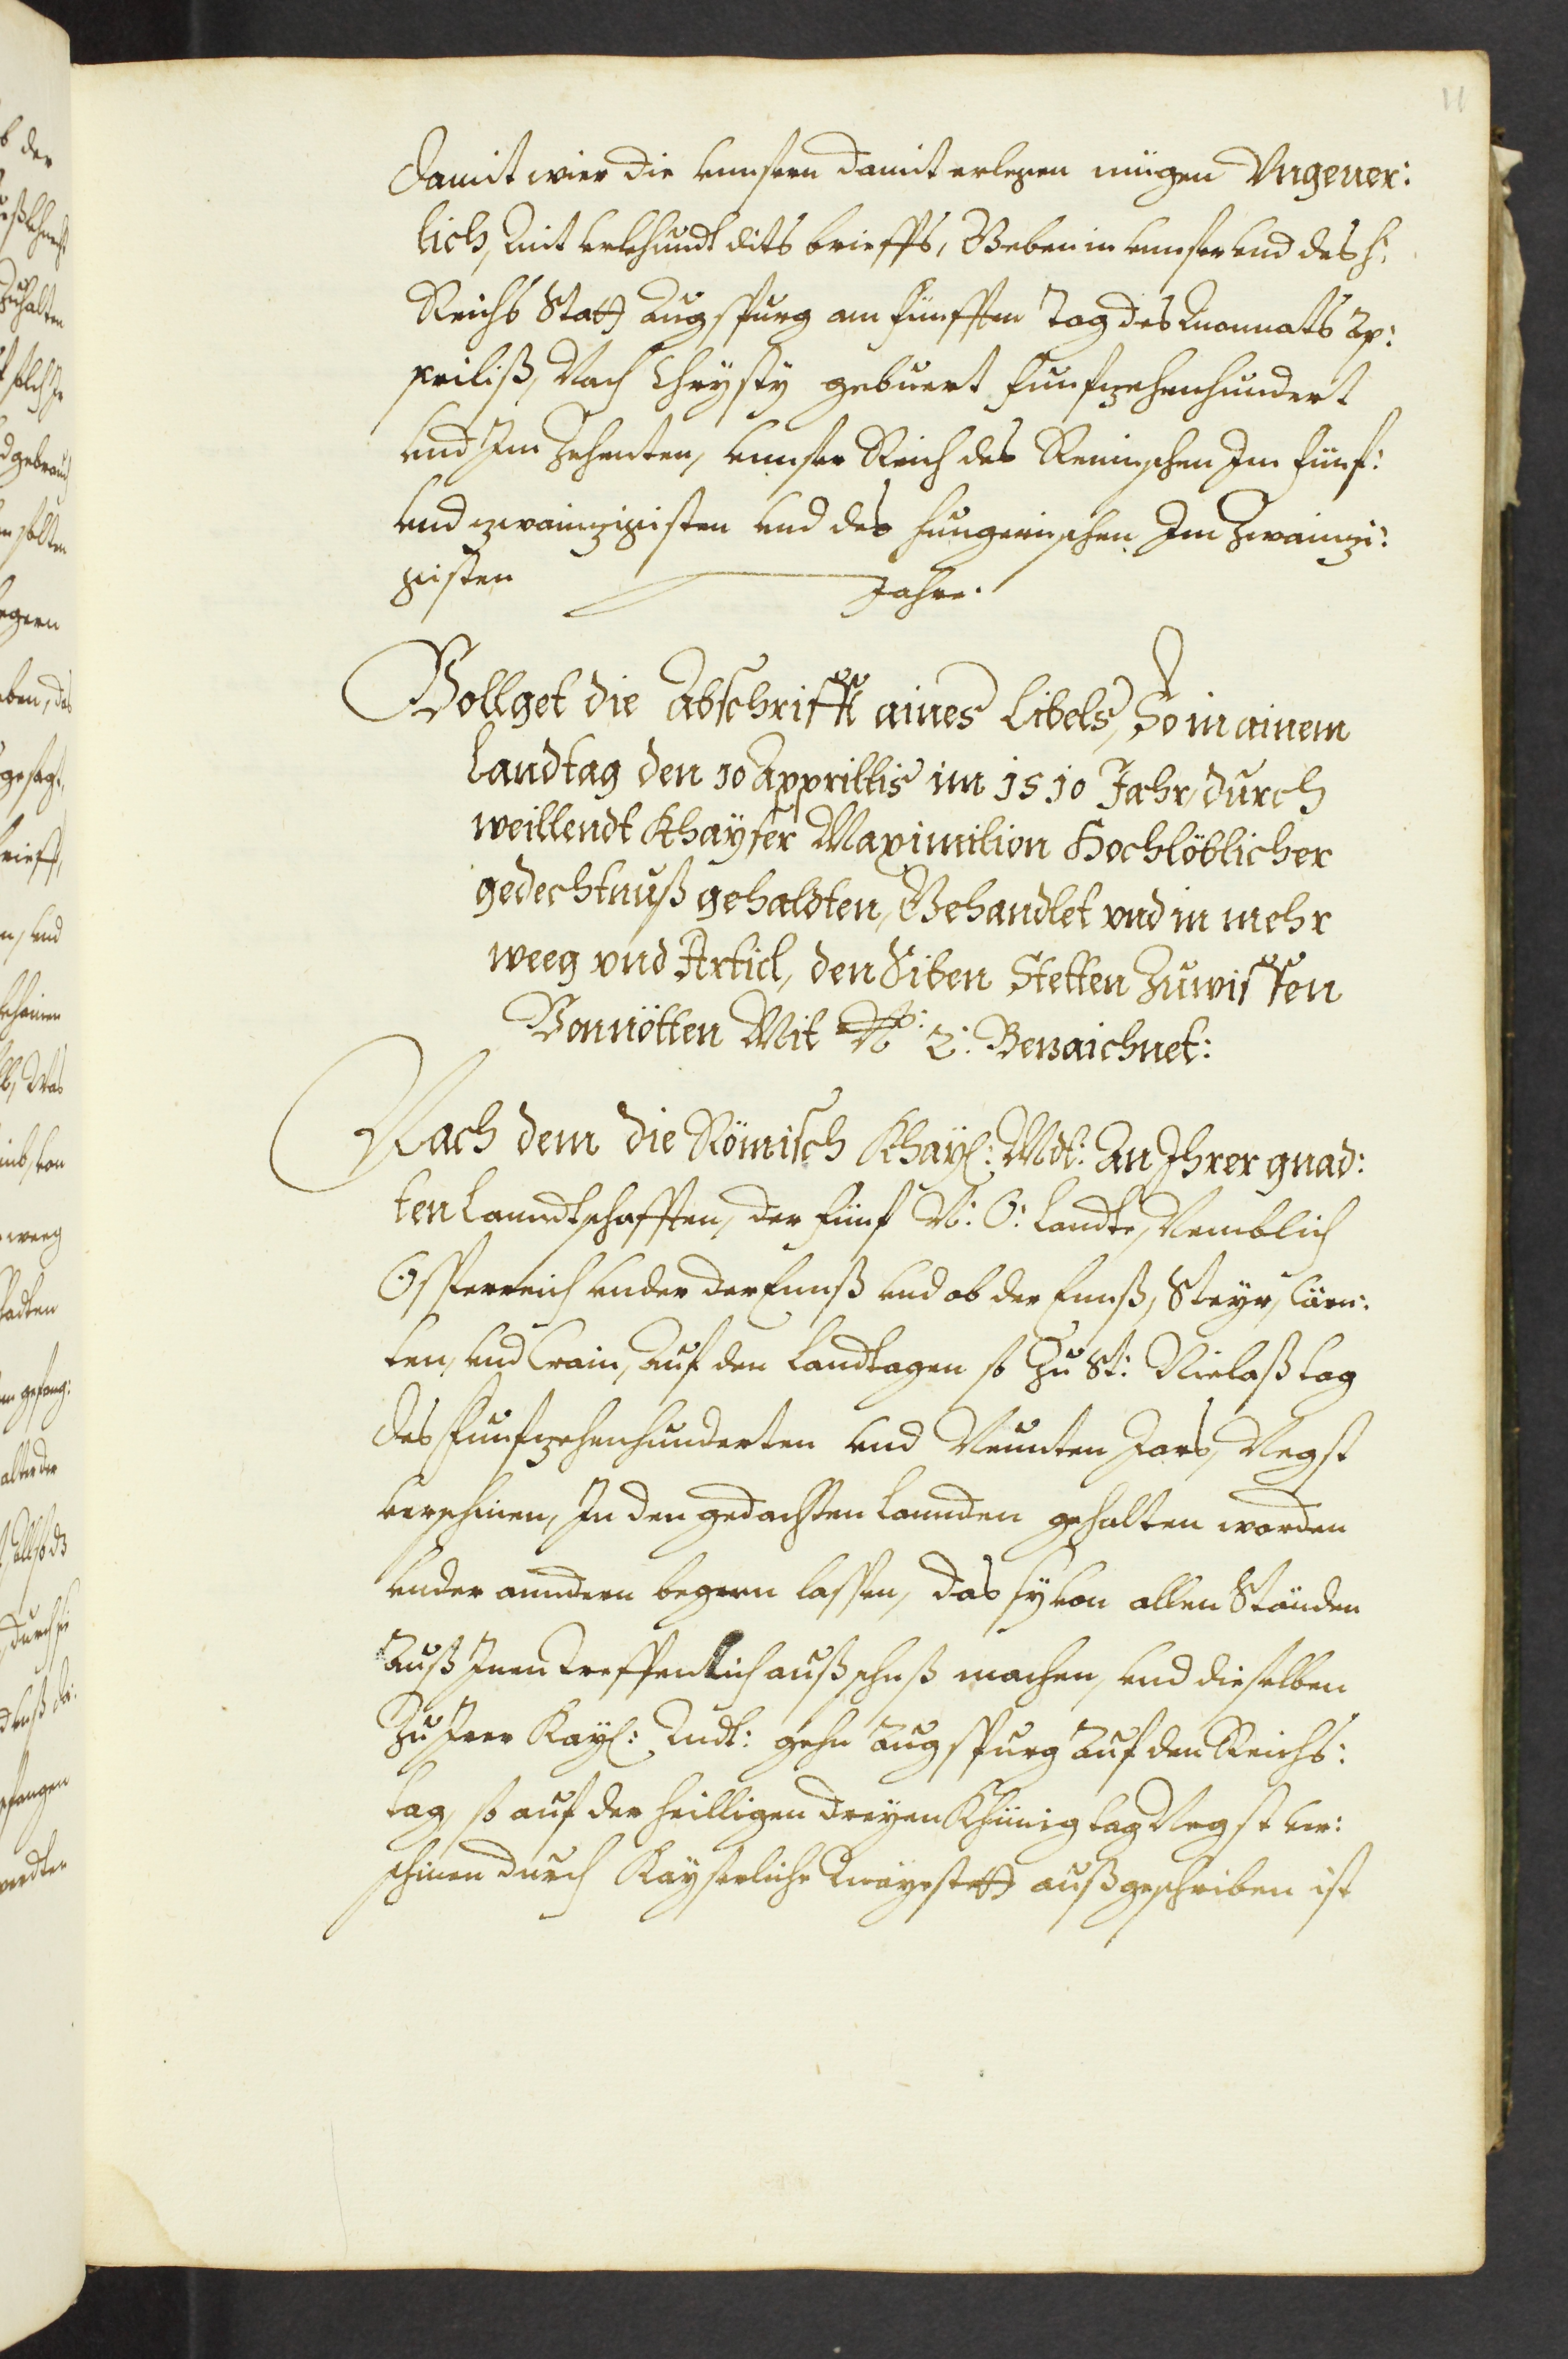 11
damit wier die unnsern damit erlegen mügen Ungeuer:
lich, Mit Urkhundt dits brieffs, Geben in unnser und des H:
Reichs Statt Augspurg am fünfften Tag des Monnats Ap:
priliß, Nach Chrysty gebuert funfzehenhundert
und Im Zehenten, unnser Reich des Reminschen Im fünf:
und zwainzigisten und des hungerischen Im Zwainzi:
gisten Jahre.
Vollget die Abschrifft aines Libels, So in ainem
Landtag den 10 Apprillis im 1510 Jahr, durch
weillendt Khaÿser Maximilion Hochlöblicher
gedechtnuß gehaldten, Behandlet vnd in mehr
weeg vnd Articl, den Siben Stetten Zuwissen
Vonnötten Mit No: 2: Bezaichnet:
Nach dem die Römisch Khaÿ: Mdt: An Ihrer gnad:
ten Lanndtschafften, der fünf N: Ö: Landte, Nemblich
Össterreich under der Ennß und ob der Ennß, Steyr, Cärn:
ten, und Crain, Auf den Landtagen so Zu St: Niclaß tag
des funfzehenhunderten und Neunten Jars, Negst
verschinen, In den gedachten Lannden gehalten worden
under anndern begern lassen, das sÿ von allen Ständen
Auß Inen Treffenlich außschuß machen, und dieselben
Zu Irer Kaÿ: Mdt: gehn Augspurg Auf den Reichs:
tag, so auf der heilligen dreÿen Khünig tag Negst ver:
schinen durch Kaÿserliche Maÿestett außgeschriben ist